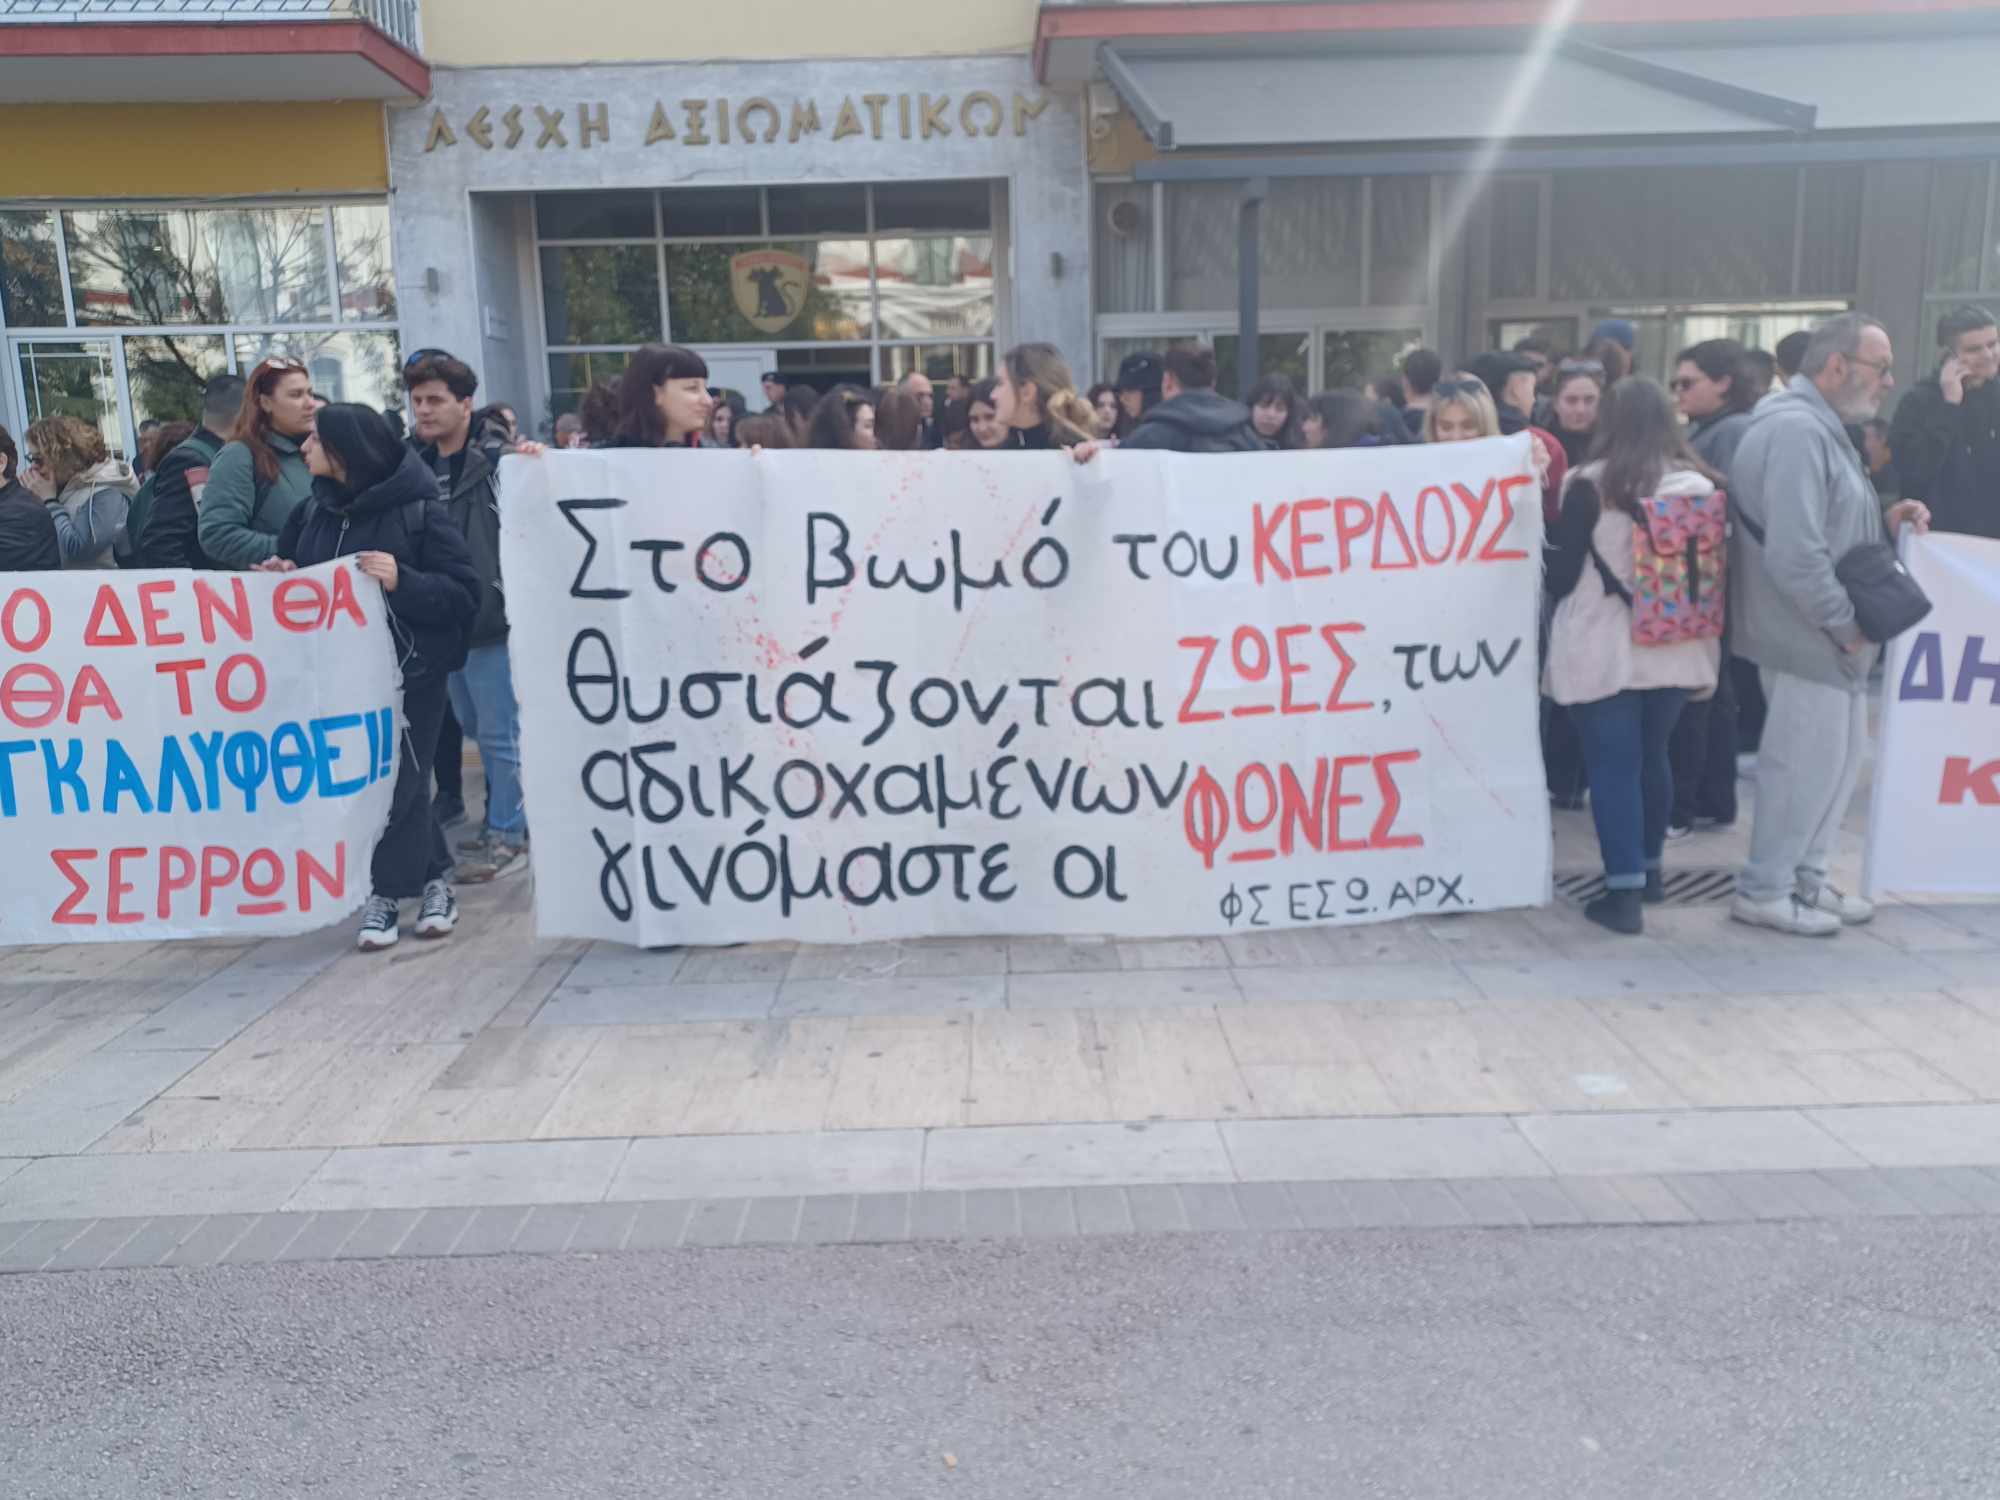 ΛΕΣΧΗ ΑΞΙΩΜΑΤΙΚΩΝ
Ο ΔΕΝ ΘΑ
ΘΑ ΤΟ
ΓΚΑΛΥΦΘΕΙ!!
ΣΕΡΡΩΝ
Στο βωμό του ΚΕΡΔΟΥΣ
θυσιάζονται ΖΩΕΣ, των
αδικοχαμένων
γινόμαστε οι ΦΩΝΕΣ
ΦΣ ΕΣΩ. ΑΡΧ.
ΔΗ
Κ